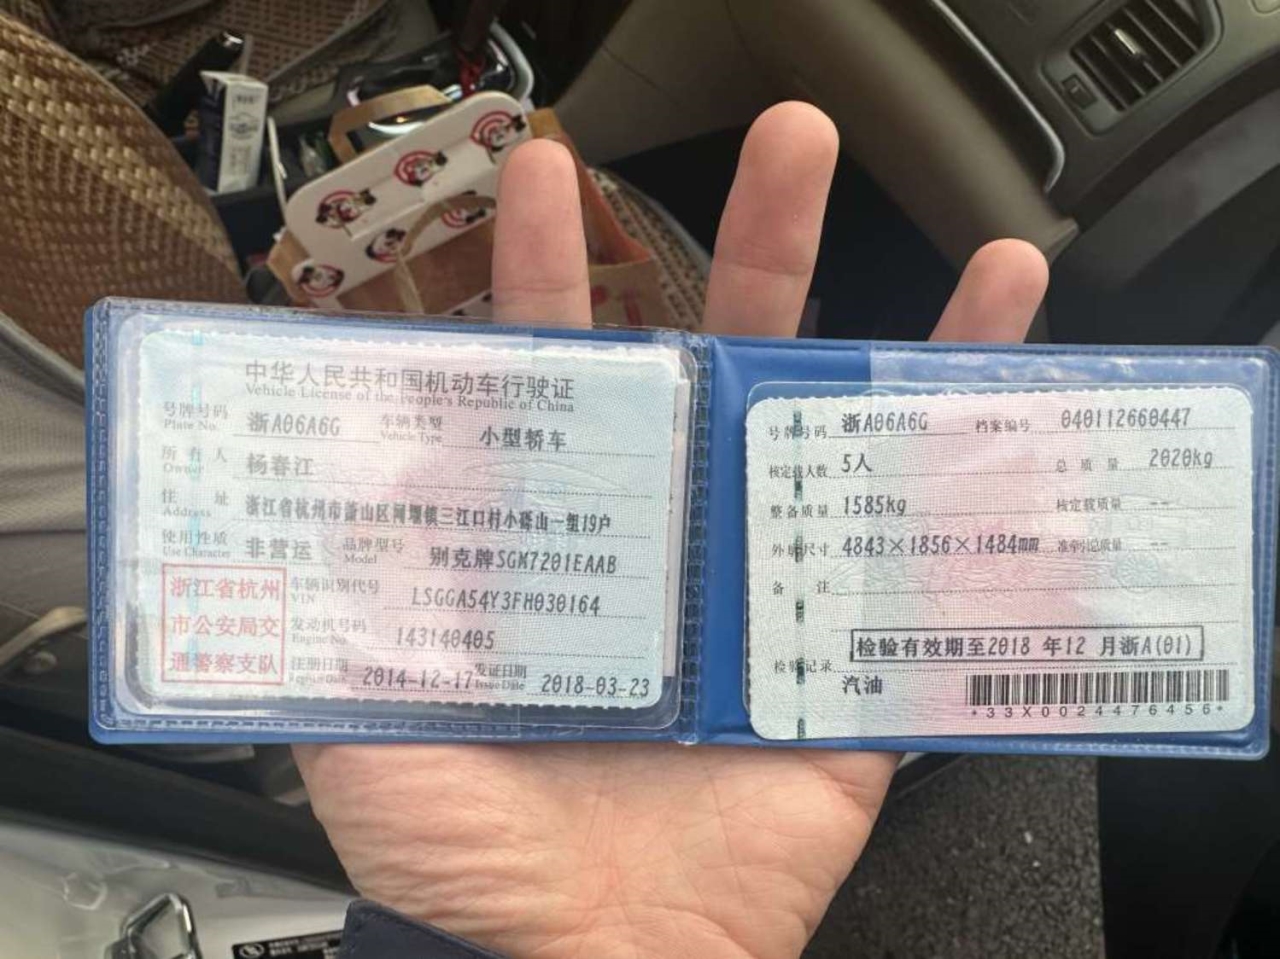 中华人民共和国机动车行驶证
Vehicle License of the People's Republic of China
号牌号码 浙A06A6G 车辆类型 小型轿车
Plate No. Vehicle Type
所有人 杨春江
Owner
住址 浙江省杭州市萧山区闻堰镇三江口村小砾山一组19户
Address
使用性质 非营运 品牌型号 别克牌SGM7201EAAB
Use Character Model
浙江省杭州
市公安局交
通警察支队
车辆识别代号 LSGGA54Y3FH030164
VIN
发动机号码 143140405
Engine No.
注册日期 2014-12-17 发证日期 2018-03-23
Register Date Issue Date
号牌号码 浙A06A6G 档案编号 040112660447
核定载人数 5人 总质量 2020kg
整备质量 1585kg 核定载质量 --
外廓尺寸 4843×1856×1484mm 准牵引总质量 --
备注
检验有效期至2018 年12 月浙A(01)
检验记录
汽油
*33X0024476456*